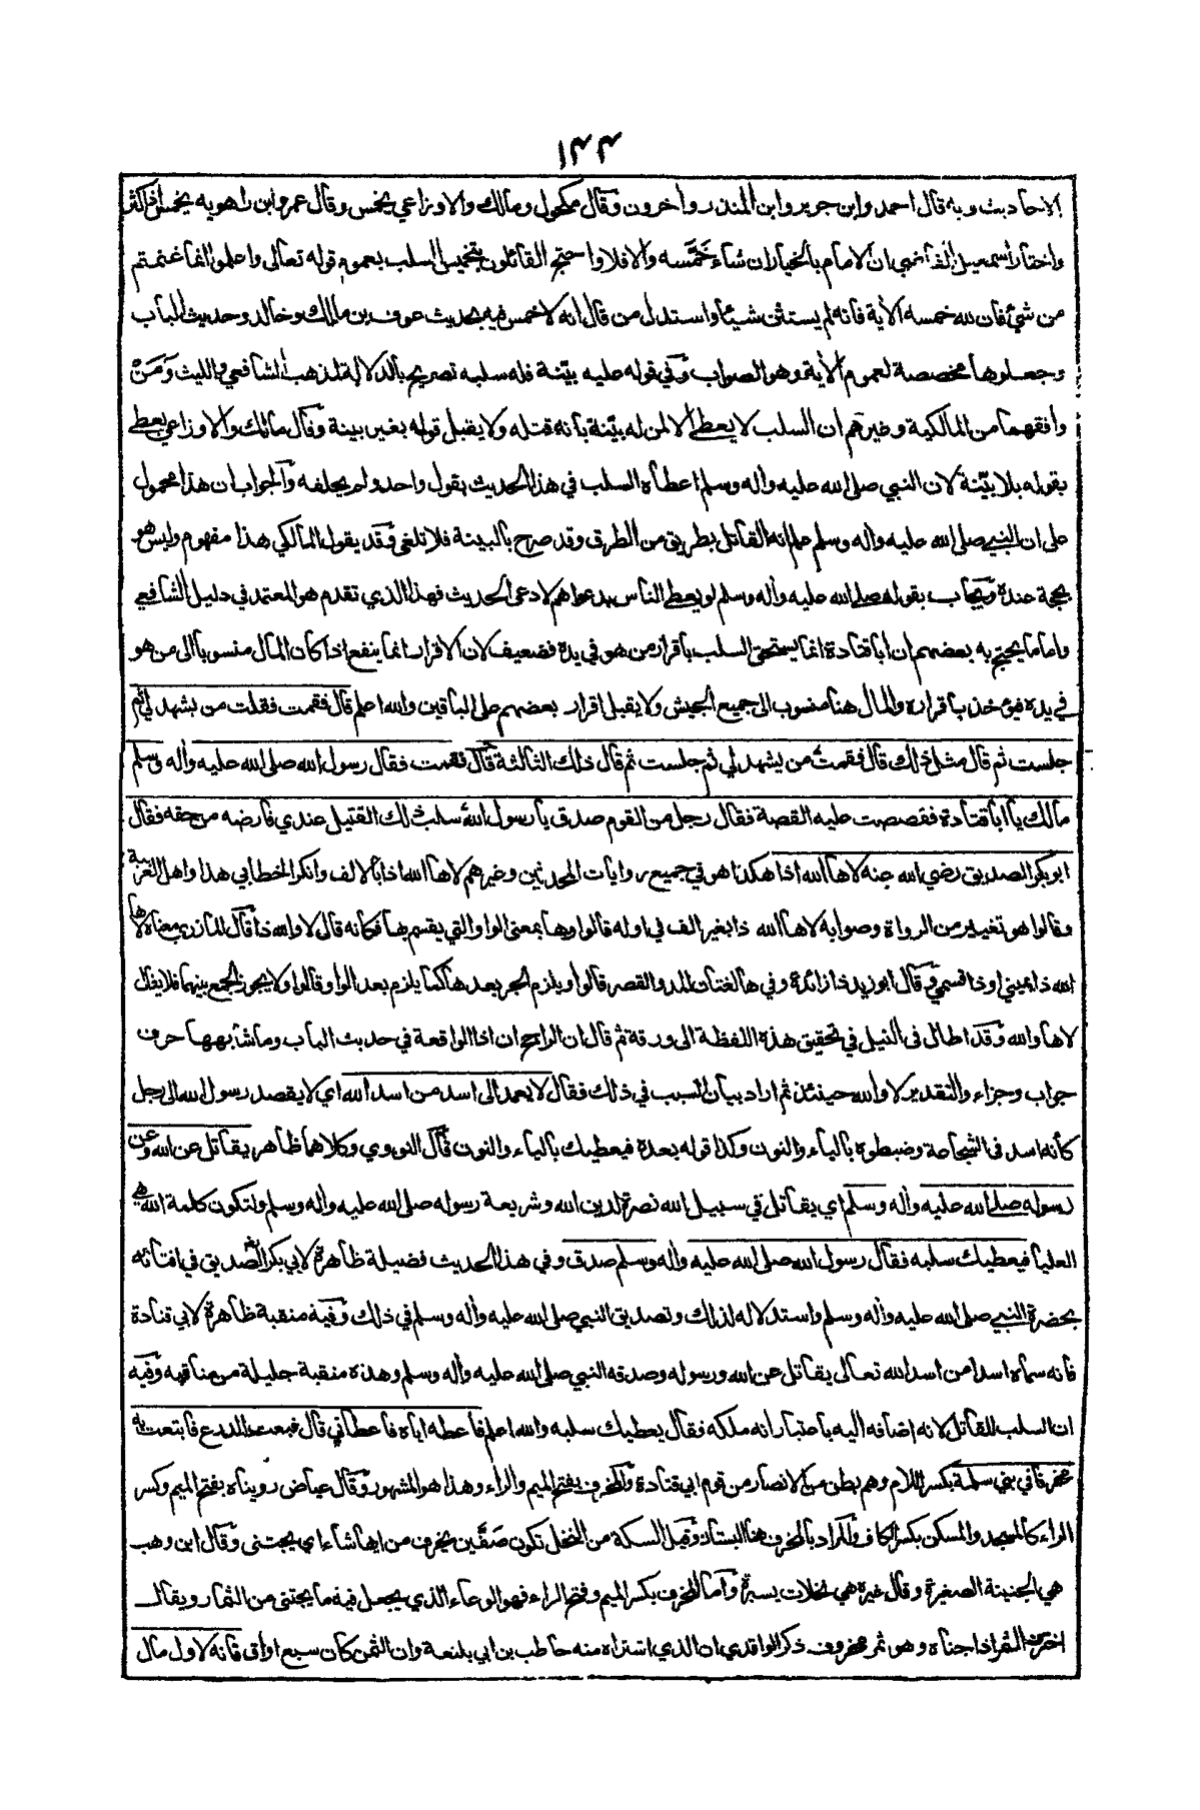 ١٣٣
الاحاديث وبه قال احمد وابن جرير وابن المنذر وآخرون وقال مكحول ومالك والاوزاعي يخمس وقال عمر وابن راهويه يخمس اذا كثر
واختار اسمعيل القاضي ان الامام بالخيار ان شاء خمّسه والا فلا واحتج القائلون بتخميس السلب بعموم قوله تعالى واعلموا انما غنمتم
من شئ فان لله خمسه الآية فانه لم يستثن شيئا واستدل من قال انه لا خمس فيه بحديث عوف بن مالك وخالد وحديث الباب
وجعلوها مخصصة لعموم الآية وهو الصواب وفي قوله عليه بيّنة فله سلبه تصريح بالدلالة لمذهب الشافعي والليث ومن
وافقهما من المالكية وغيرهم ان السلب لا يعطى الا لمن له بيّنة بانه قتله ولا يقبل قوله بغير بينة وقال مالك والاوزاعي يعطى
بقوله بلا بيّنة لان النبي صلى الله عليه وآله وسلم اعطاه السلب في هذا الحديث بقول واحد ولم يحلفه والجواب ان هذا محمول
على ان النبي صلى الله عليه وآله وسلم علم انه القاتل بطريق من الطرق وقد صرح بالبينة فلا تلغى وقد يقول المالكي هذا مفهوم وليس هو
بحجة عنده ويجاب بقوله صلى الله عليه وآله وسلم لو يعطى الناس بدعواهم لادعى الحديث فهذا الذي تقدم هو المعتمد في دليل الشافعي
واما ما يحتج به بعضهم ان ابا قتادة انما يستحق السلب باقرار من هو في يده فضعيف لان الاقرار انما ينفع اذا كان المال منسوبا الى من هو
في يده فيؤخذ باقراره والمال هنا منسوب الى جميع الجيش ولا يقبل اقرار بعضهم على الباقين والله اعلم قال فقمت فقلت من يشهد لي ثم
جلست ثم قال مثل ذلك قال فقمت من يشهد لي ثم جلست ثم قال ذلك الثالثة قال فقمت فقال رسول الله صلى الله عليه وآله وسلم
مالك يا ابا قتادة فقصصت عليه القصة فقال رجل من القوم صدق يا رسول الله سلب ذلك القتيل عندي فارضه من حقه فقال
ابو بكر الصديق رضي الله عنه لاها الله اذا هكذا هو في جميع روايات المحدثين وغيرهم لاها الله اذا بالالف وانكر الخطابي هذا واهل العربية
وقالوا هو تغيير من الرواة وصوابه لاها الله ذا بغير الف في اوله قالوا وها بمعنى الواو التي يقسم بها فكأنه قال لا والله ذا قال المازري معناه لاها
الله ذا يميني او ذا قسمي وقال ابو زيد ذا زائدة وفي ها لغتان المد والقصر قالوا ويلزم الجر بعدها كما يلزم بعد الواو قالوا ولا يجوز الجمع بينهما فلا يقال
لاها والله وقد اطال في النيل في تحقيق هذه اللفظة الى ورقة ثم قال ان الراجح ان اذا الواقعة في حديث الباب وما شابهها حرف
جواب وجزاء والتقدير لا والله حينئذ ثم اراد بيان السبب في ذلك فقال لا يعمد الى اسد من اسد الله اي لا يقصد رسول الله الى رجل
كأنه اسد في الشجاعة وضبطوه بالياء والنون وكذا قوله بعده فيعطيك بالياء والنون قال النووي وكلاهما ظاهر يقاتل عن الله وعن
رسوله صلى الله عليه وآله وسلم اي يقاتل في سبيل الله نصرة لدين الله وشريعة رسوله صلى الله عليه وآله وسلم ولتكون كلمة الله هي
العليا فيعطيك سلبه فقال رسول الله صلى الله عليه وآله وسلم صدق وفي هذا الحديث فضيلة ظاهرة لابي بكر الصديق في افتائه
بحضرة النبي صلى الله عليه وآله وسلم واستدلاله لذلك وتصديق النبي صلى الله عليه وآله وسلم في ذلك وفيه منقبة ظاهرة لابي قتادة
فانه سماه اسدا من اسد الله تعالى يقاتل عن الله ورسوله وصدقه النبي صلى الله عليه وآله وسلم وهذه منقبة جليلة من مناقبه وفيه
ان السلب للقاتل لانه اضافه اليه باعتبار انه ملكه فقال يعطيك سلبه والله اعلم فاعطه اياه فاعطاني قال فبعت الدرع فابتعت به
مخرفا في بني سلمة بكسر اللام وهم بطن من الانصار من قوم ابي قتادة والمخرف بفتح الميم والراء وهذا هو المشهور وقال عياض رويناه بفتح الميم وكسر
الراء كالمسجد والمسكن بكسر الكاف والمراد بالمخرف هنا البستان وقيل السكة من النخل تكون صفّين يخرف من ايها شاء اي يجتنى وقال ابن وهب
هي الجنينة الصغيرة وقال غيره هي نخلات يسيرة واما المخرف بكسر الميم وفتح الراء فهو الوعاء الذي يجعل فيه ما يجتنى من الثمار ويقال
اخترف الثمر اذا جناه وهو ثمر مخروف ذكر الواقدي ان الذي اشتراه منه حاطب بن ابي بلتعة وان الثمن كان سبع اواق فانه لاول مال